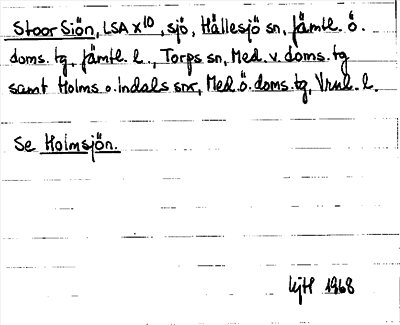 Stoor Siön, LSA X10, sjö, Hållesjö sn, Jämtl. ö.
doms. tg, Jämtl. l., Torps sn, Med. v. doms. tg
samt Holms o. Indals snr, Med. ö. doms. tg, Vrnl. l.
Se Holmsjön.
1968